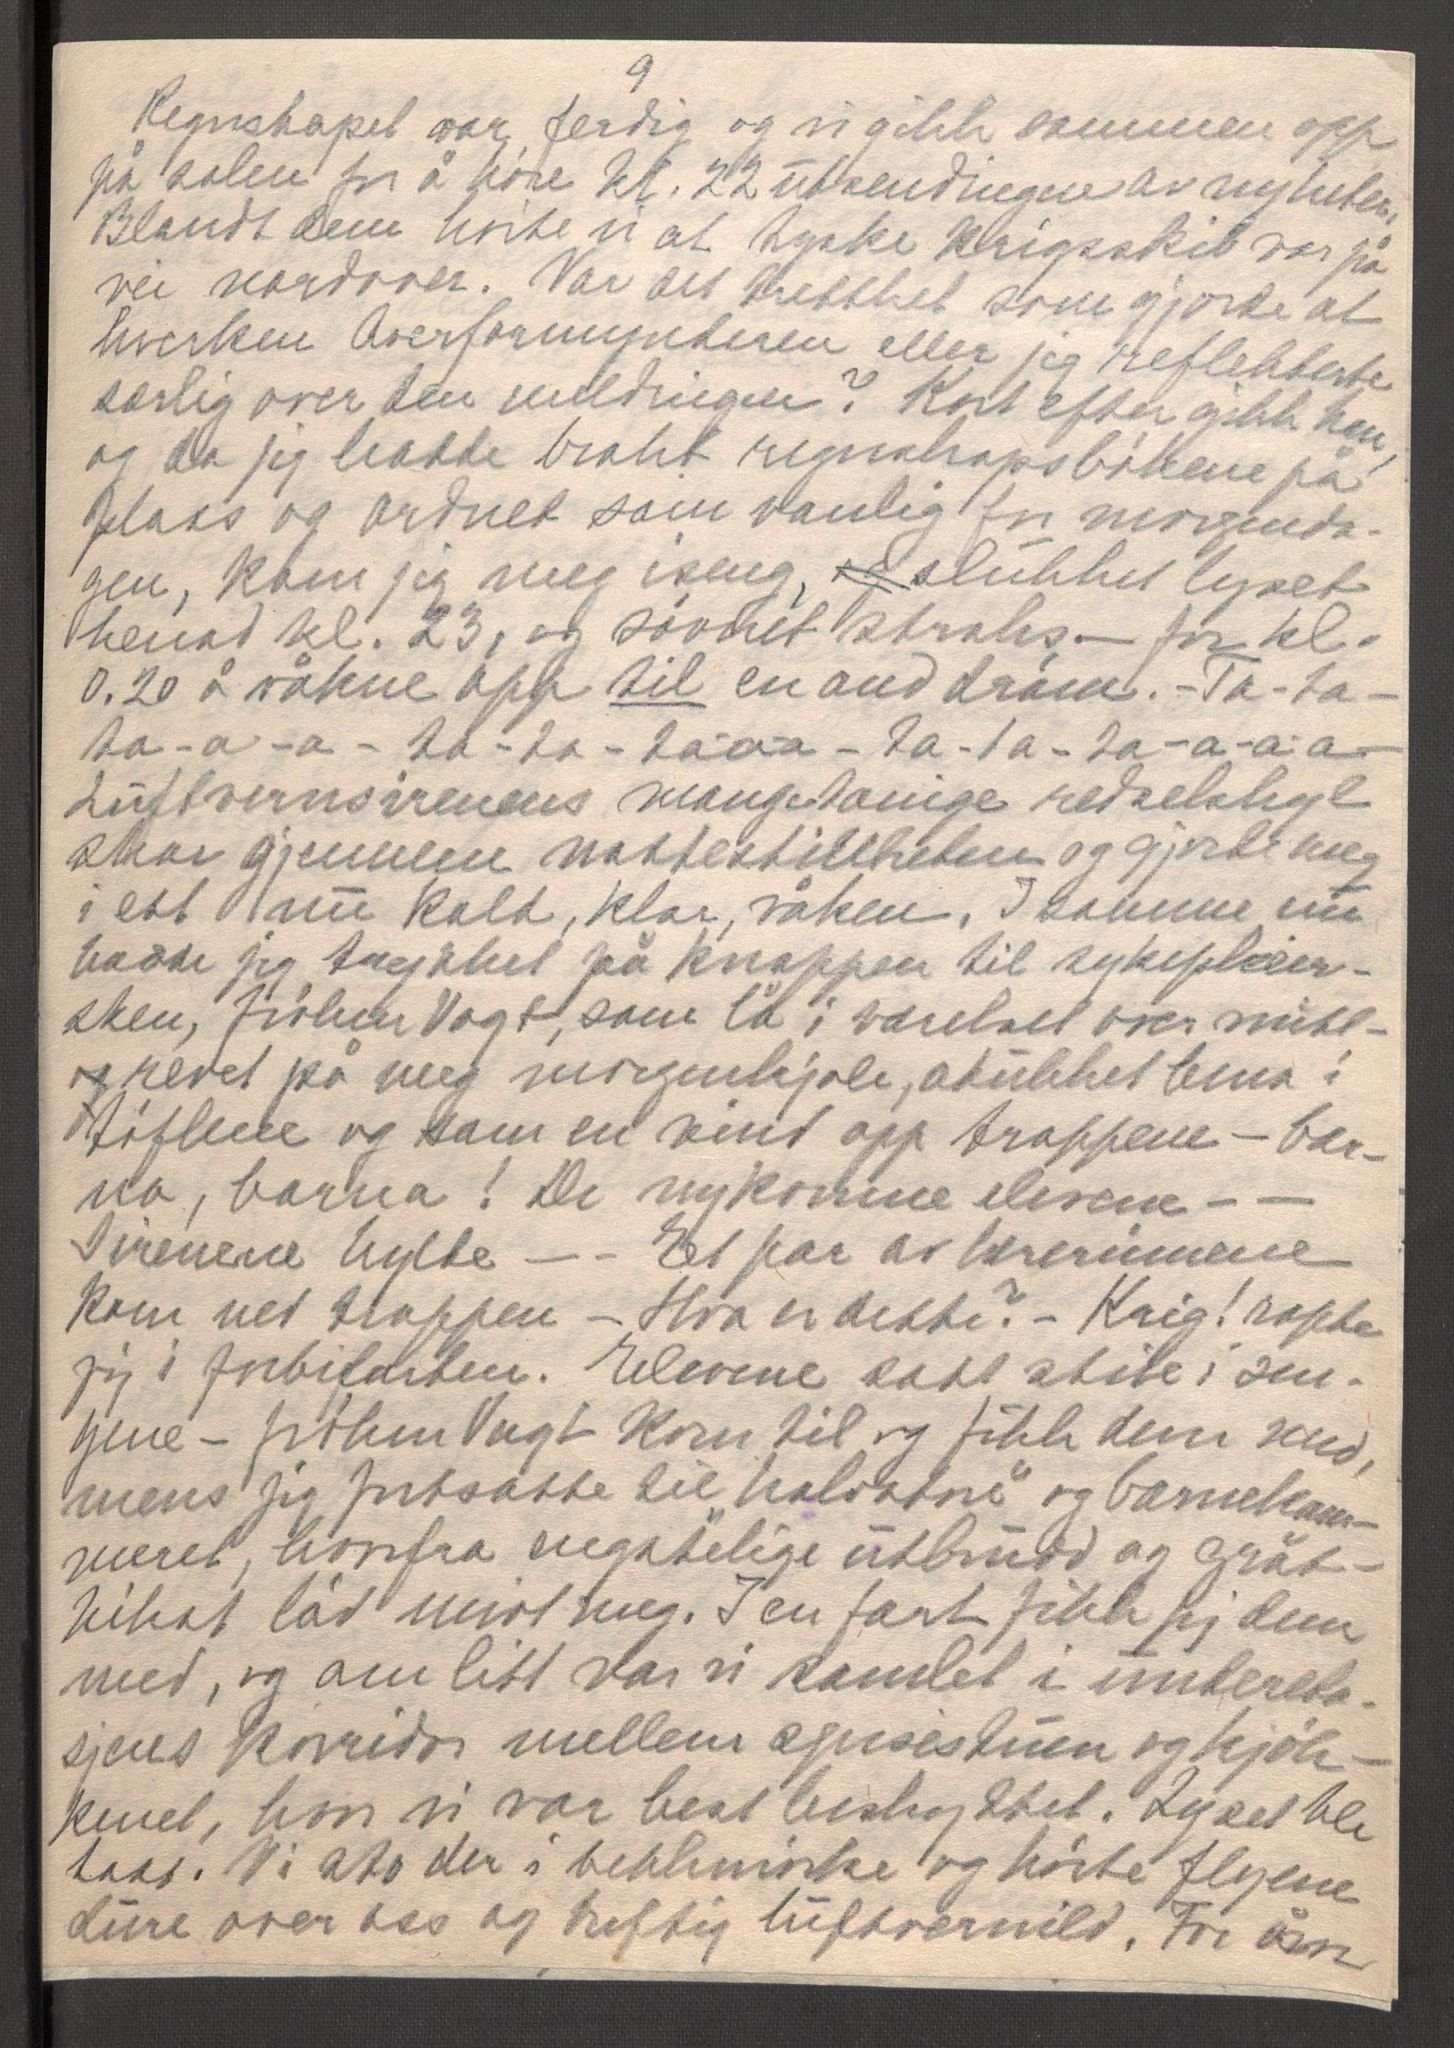 9
Regnskapet var ferdig og vi gikk sammen opp
på salen for å høre kl. 22 utsendingene av nyheter.
Blandt dem hørte vi at tyske krigsskib var på
vei nordover. Var det tretthet som gjorde at
hverken Overformynderen eller jeg reflekterte
særlig over den meldingen? Kort efter gikk han,
og da jeg hadde brakt regnskapsbøkene på
plass og ordnet som vanlig for morgenda-
gen, kom jeg meg iseng, og slukket lyset
henad kl. 23, og sovnet straks — for kl.
0.20 å våkne opp til en ond drøm. - Ta-ta-
ta-a-a-a - ta-ta-ta-a-a-a - ta-ta-ta-a-a-a-a —
Luftvernsirenens mangetonige redselshyl
skar gjennem nattestillheten og gjorde meg
i ett nu kald, klar, våken. I samme nu
hadde jeg trykket på knappen til sykepleier-
sken, frøken Vogt, som lå i værelset over mitt -
og revet på meg morgenkjole, stukket bena i
tøflene og som en vind opp trappene — bar-
na, barna! De nykomne elevene — —
Sirenene hylte — - Et par av lærerinnene
kom ned trappen — Hva er dette? - Krig! ropte
jeg i forbifarten. Elevene satt stive i sen-
gene — frøken Vogt kom til og fikk dem ned,
mens jeg fortsatte til "halvstore" og barnekam-
meret, hvorfra engstelige utbrudd og gråt-
hikst lød mot meg. I en fart fikk jeg dem
med, og om litt var vi samlet i undereta-
sjens korridor mellem spisestuen og kjøk-
kenet, hvor vi var best beskyttet. Lyset ble
tatt. Vi sto der i bekkmørke og hørte flyene
dure over oss og heftig luftvernild. For åsn